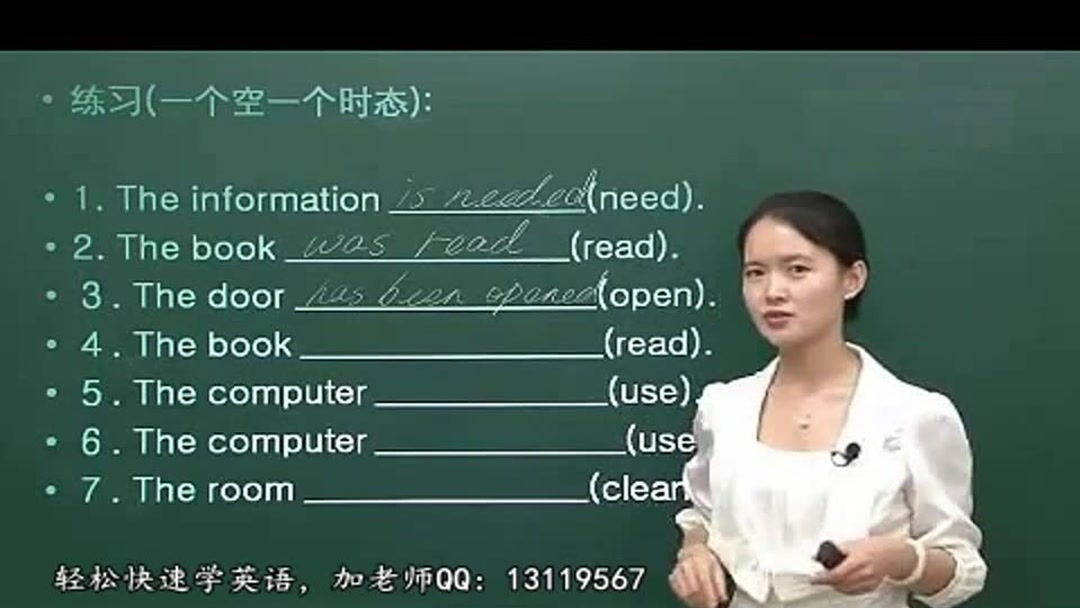 • 练习(一个空一个时态):
• 1. The information is needed(need).
• 2. The book was read (read).
• 3. The door has been opened(open).
• 4. The book ____________(read).
• 5. The computer ____________(use).
• 6. The computer ____________(use
• 7. The room ____________(clean
轻松快速学英语，加老师QQ：13119567